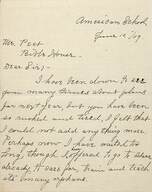 American School,
June 12/09
Mr. Peet
Bible House
Dear Sir;-
I have been down to see
you many times about plans
for next year, but you have been
so rushed and tired, I felt that
I could not add any thing more.
Perhaps now I have waited to
long, though I offered to go to
already to care for, train and teach
orphans.